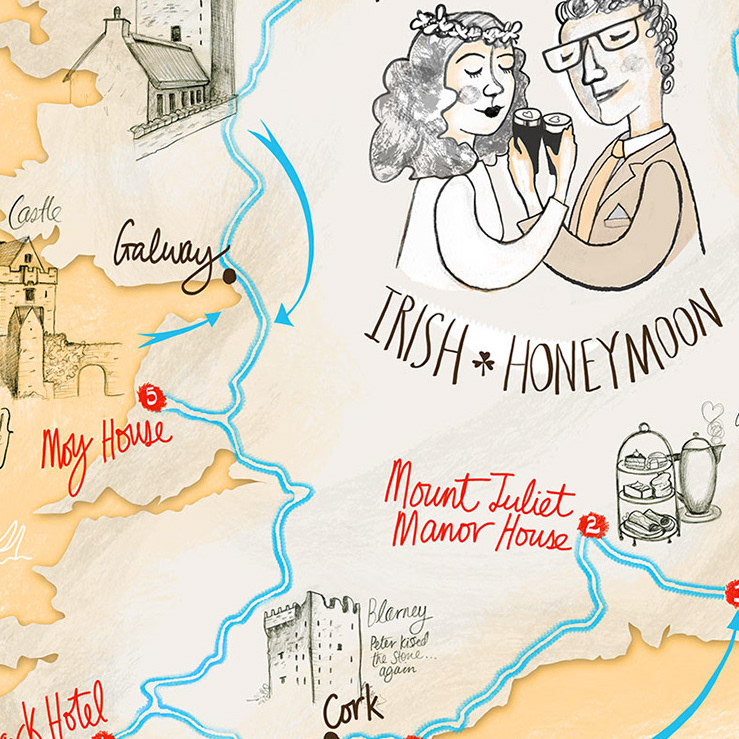 Castle
Galway
IRISH HONEYMOON
5
Moy House
Mount Juliet
Manor House
2
Blarney
Peter kissed
the stone...
again
Hotel
Cork